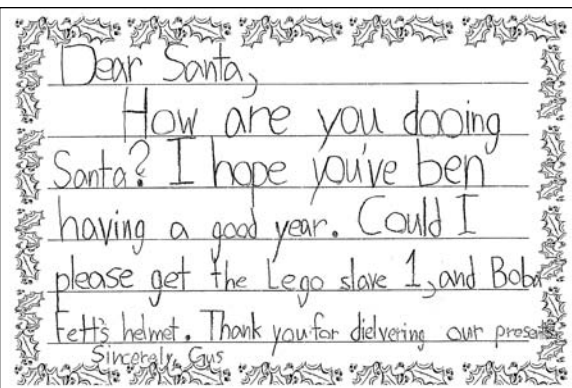 Dear Santa,
How are you dooing
Santa? I hope you've ben
having a good year. Could I
please get the Lego slave 1, and Boba
Fett's helmet. Thank you for dielvering our presents
Sincerely, Gus